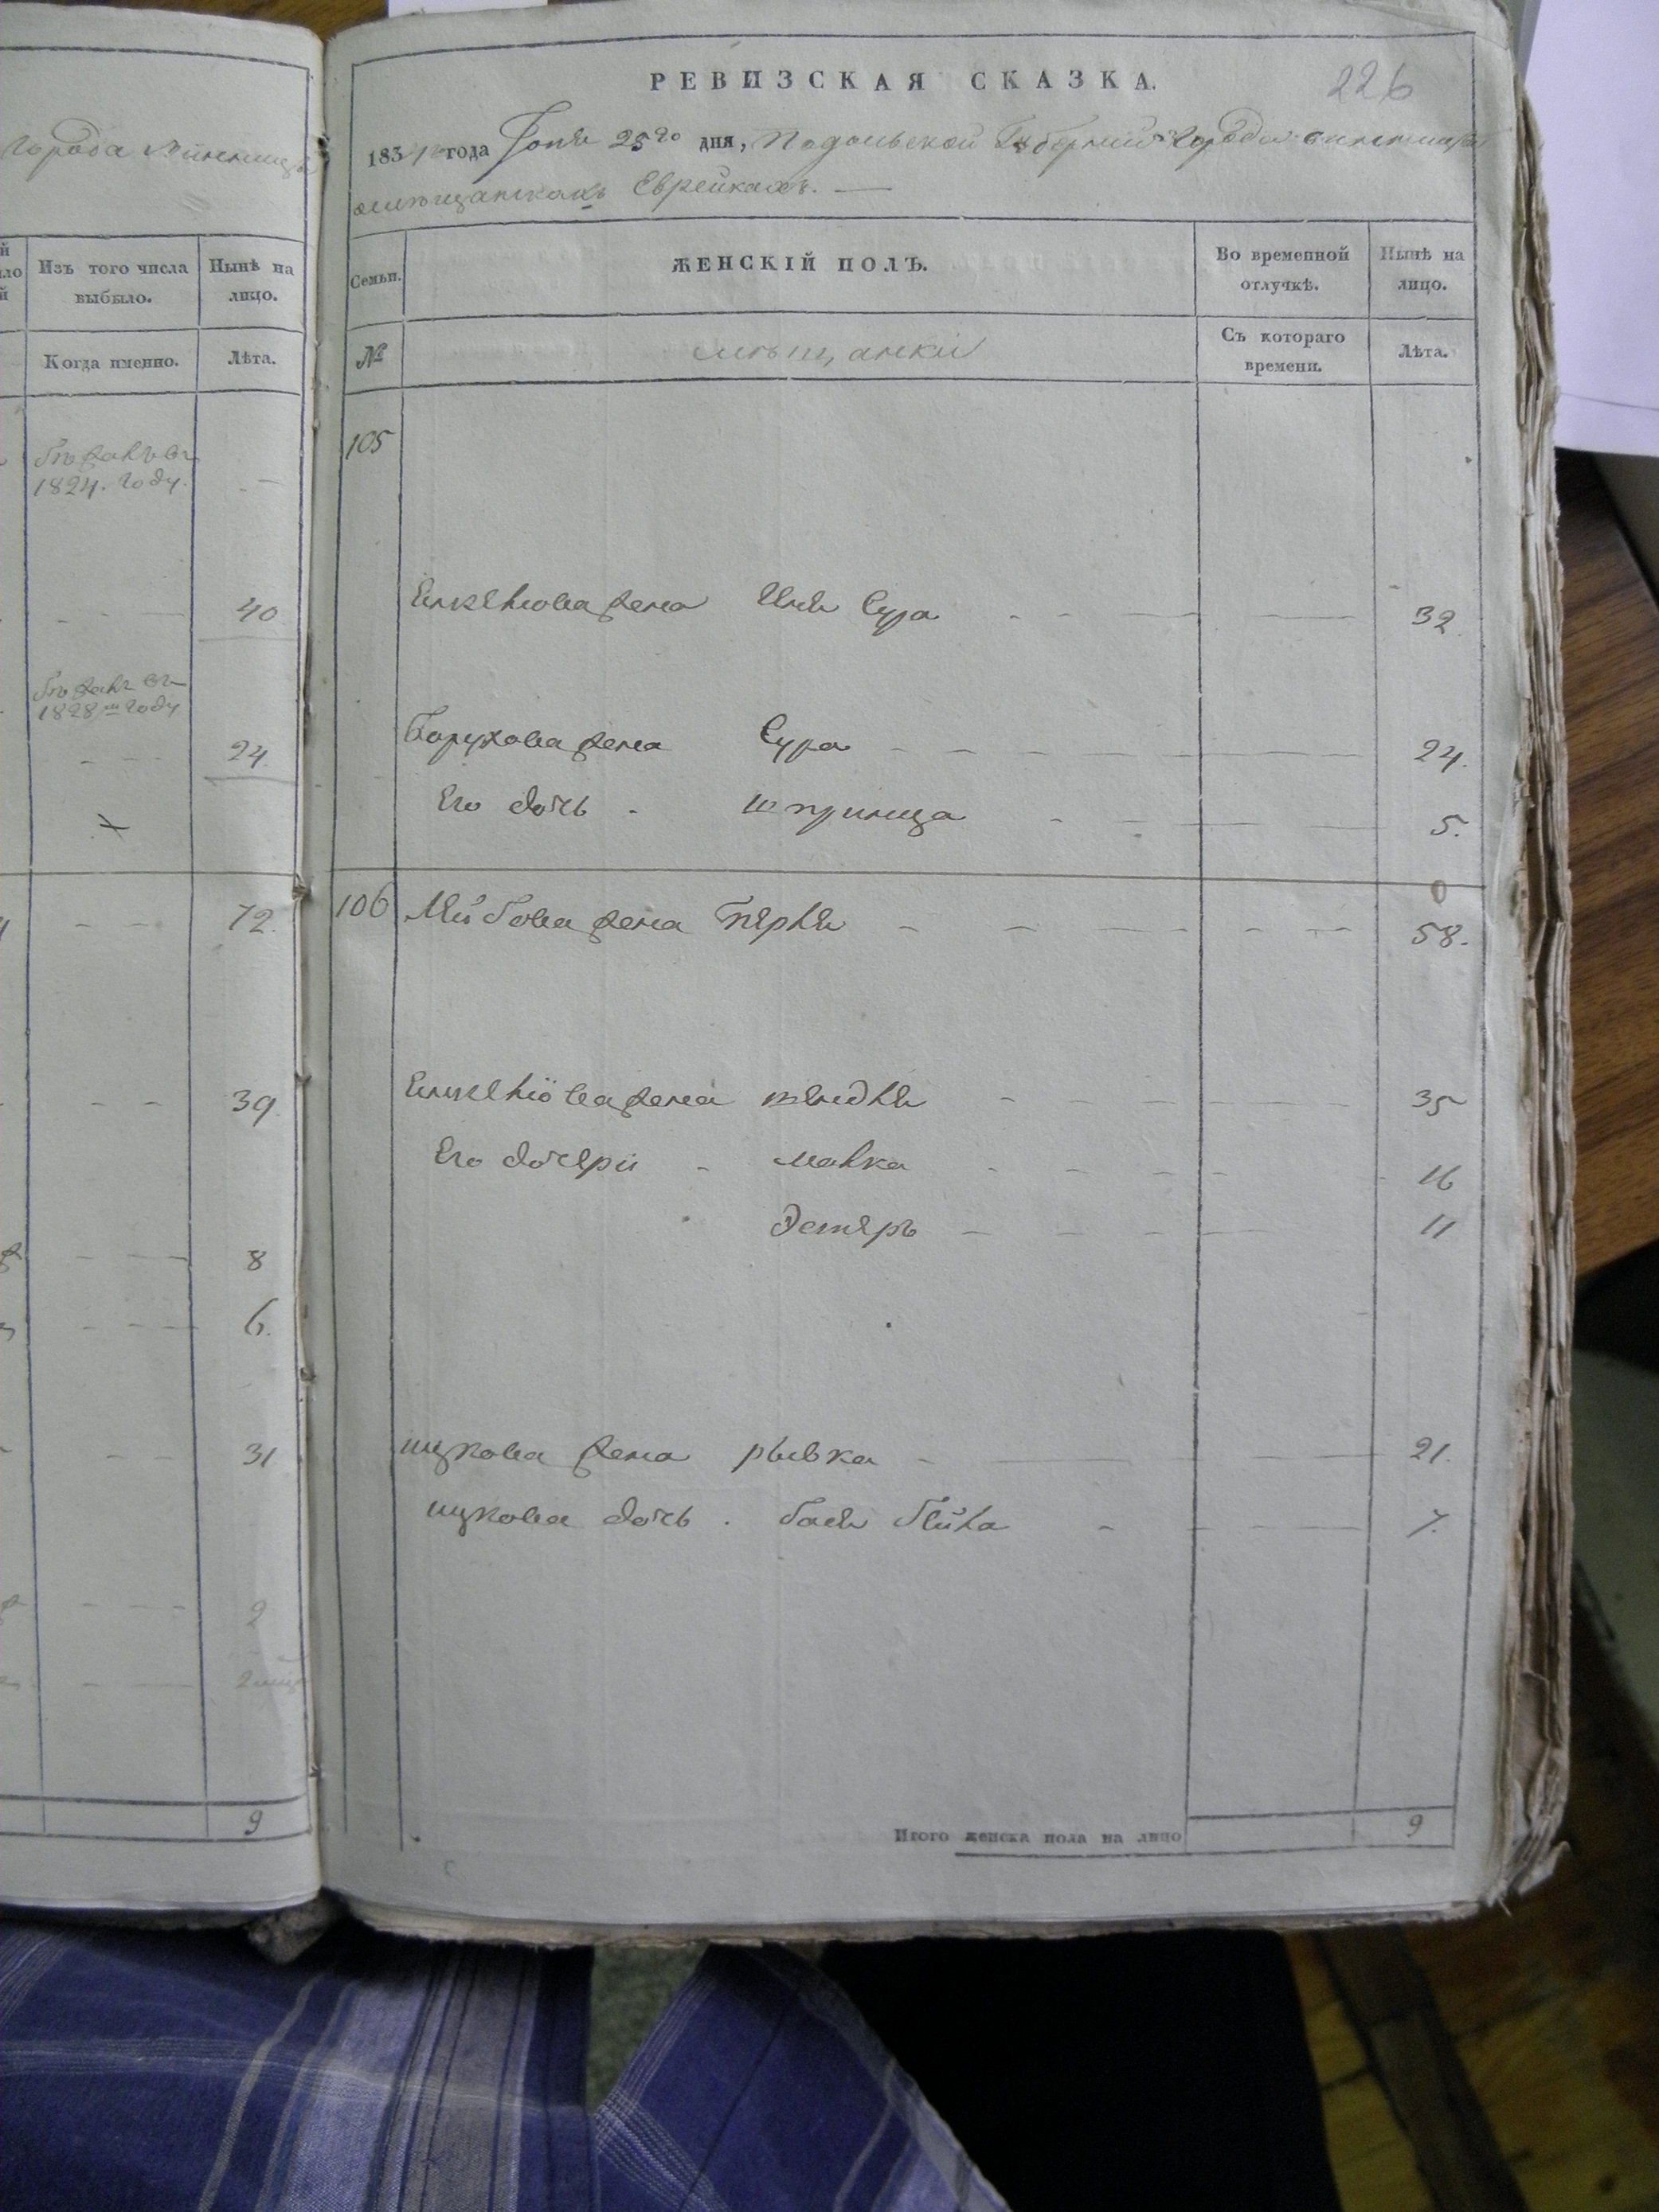 города Винницы
Изъ того числа выбыло.
Ныне на лицо.
Когда именно.
Лѣта.
бѣжалъ въ
1824. году.
40
бѣжалъ въ
1828м году
24.
72.
39.
8
6.
31
2
9
РЕВИЗСКАЯ СКАЗКА.
226
1834 года Іюня 25го дня, Подольской Губерніи города Винницы
мѣщанскахъ Еврейкахъ.
Семьи.
ЖЕНСКІЙ ПОЛЪ.
Во временной отлучкѣ.
Нынѣ на лицо.
№
мѣщанки
Съ котораго времени.
Лѣта.
105
жена Сура 32.
Борухова жена Сура 24.
Его дочь Шпринца 5.
106 Лейбова жена Перля 58.
жена 35
Его дочери Малка 16
Эстеръ 11
Ицкова жена Рывка 21.
Ицкова дочь Бася Бейла 7.
Итого женска пола на лицо 9